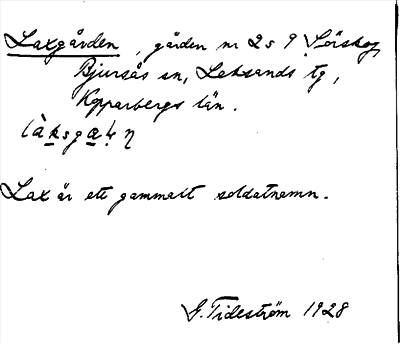 Laxgården, gården nr 2 s 9 Sörskog,
Bjursås sn, Leksands tg,
Kopparbergs län.
Lax är ett gammalt soldatnamn.
G. Tideström 1928